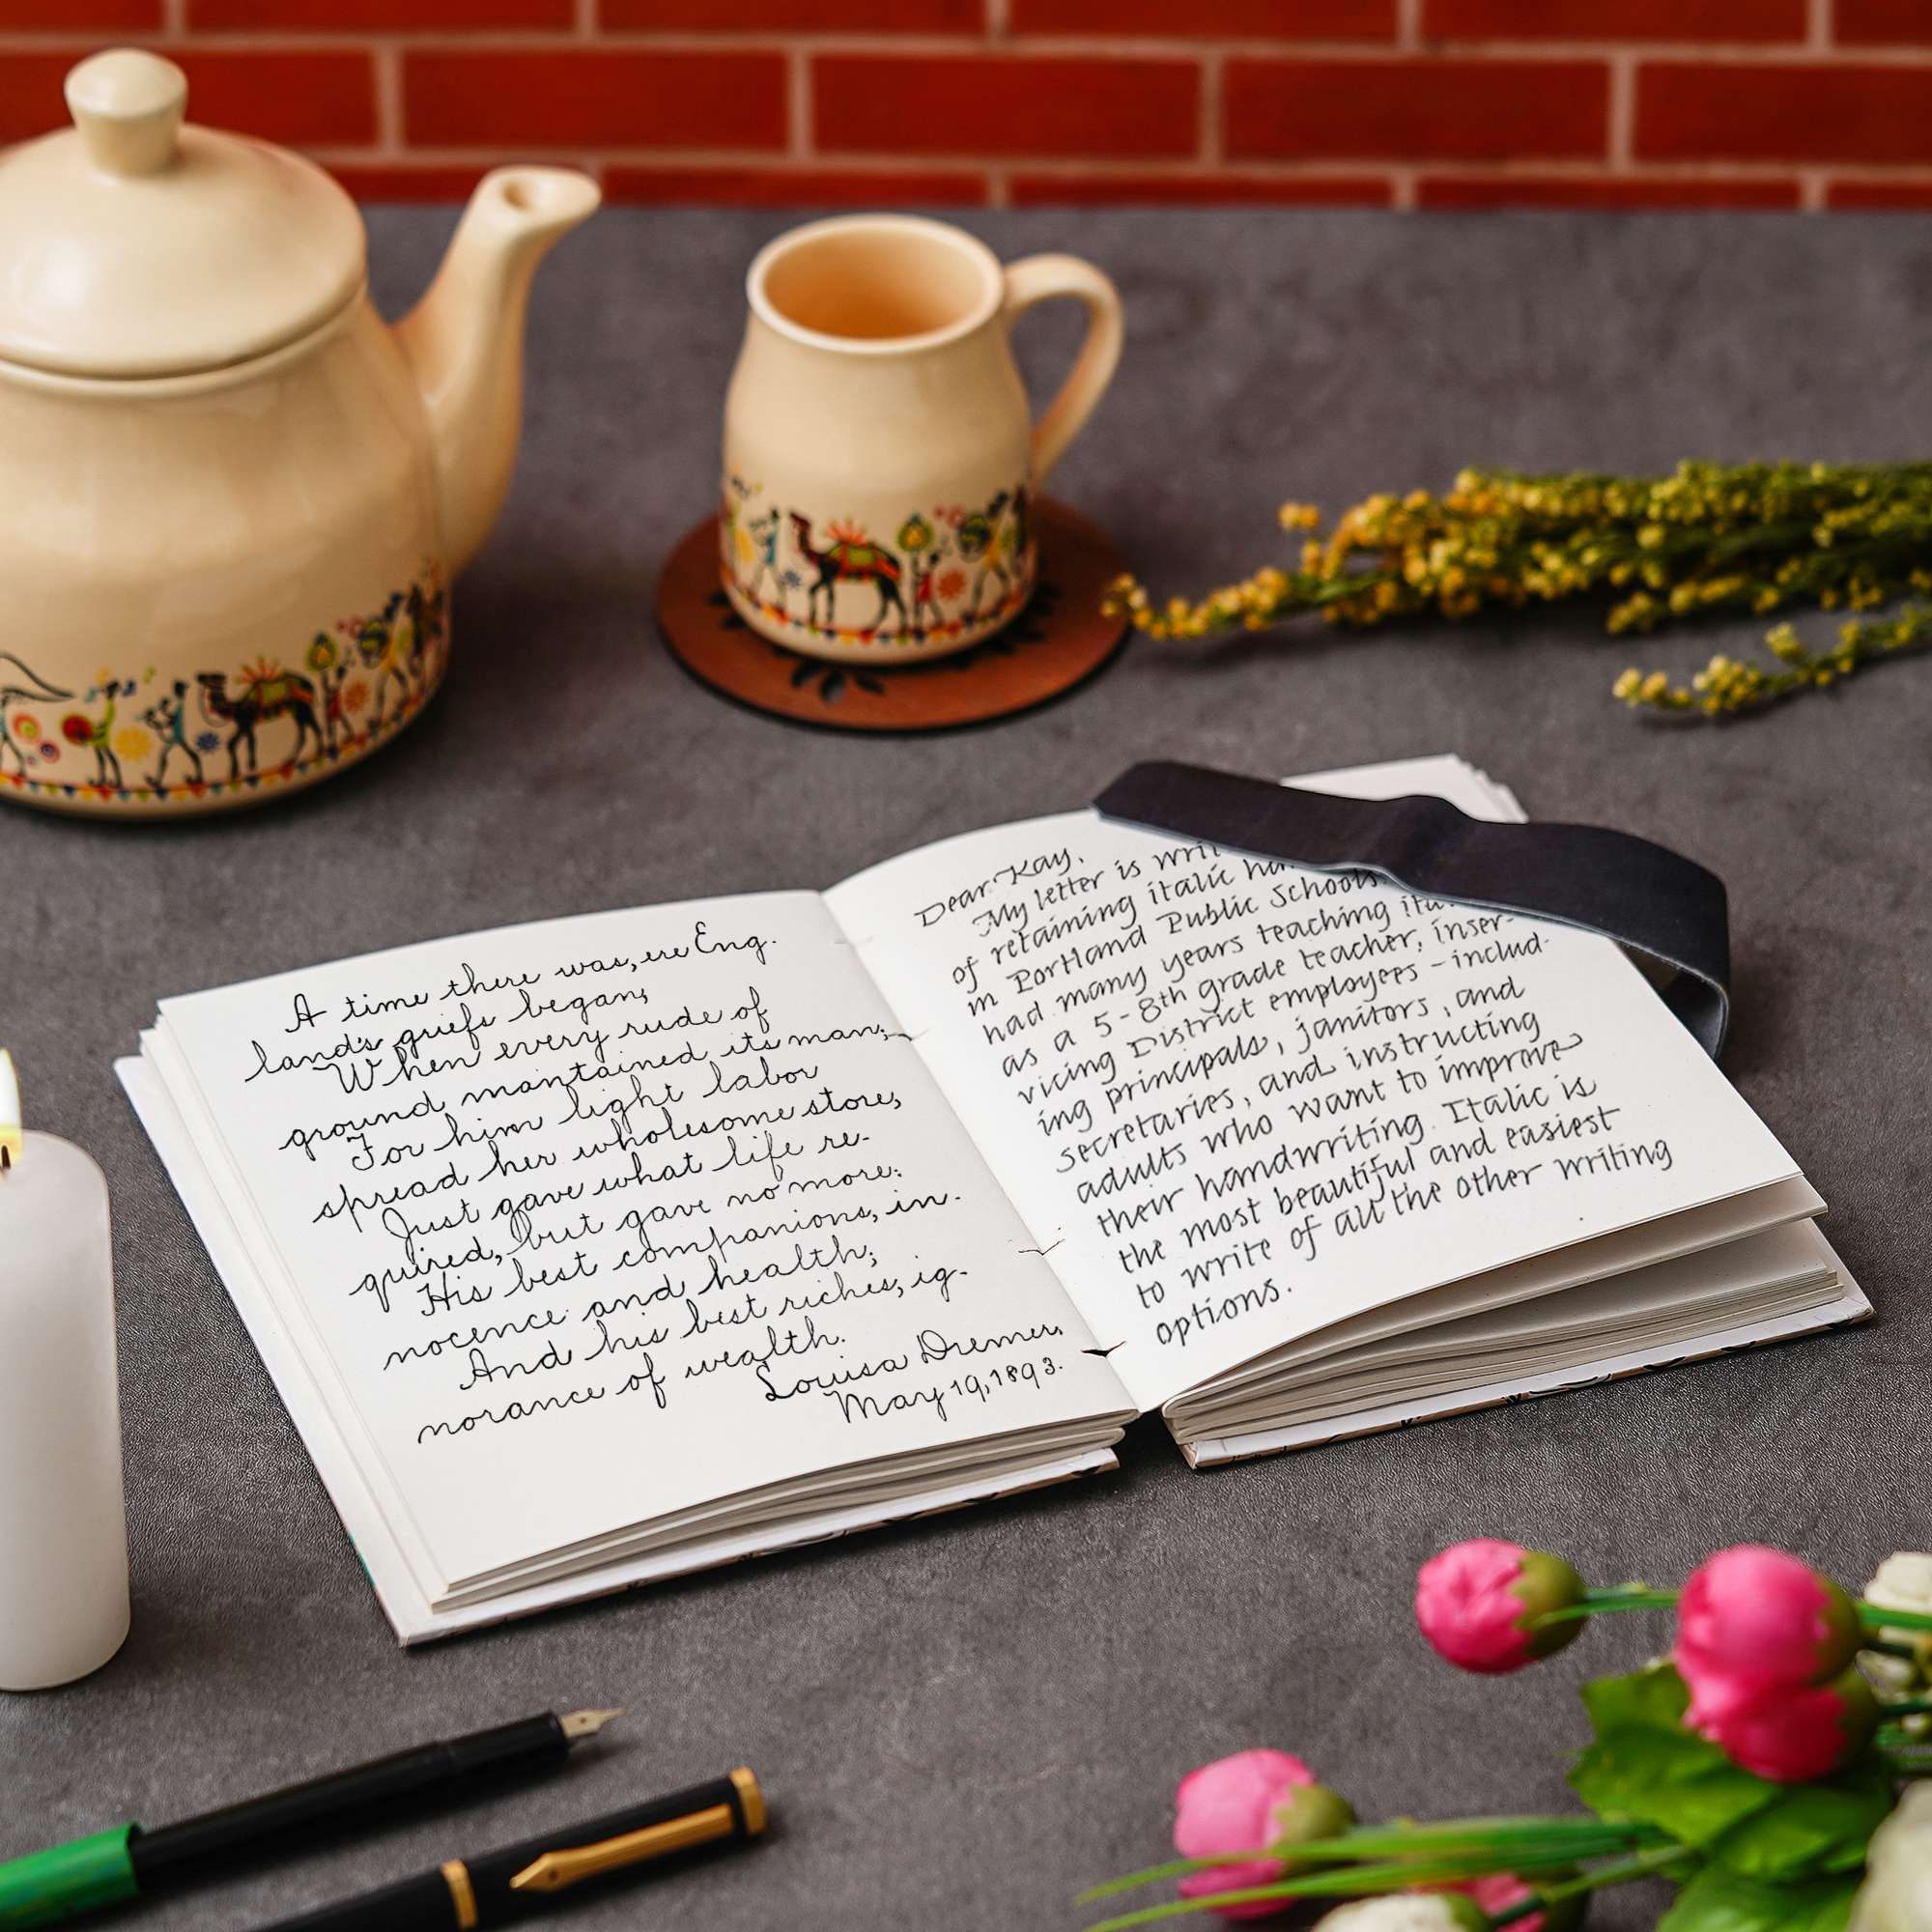 A time there was, ere Eng-
land's griefs began,
When every rude of
ground maintained its man;
For him light labor
spread her wholesome store,
Just gave what life re-
quired, but gave no more:
His best companions, in-
nocence and health;
And his best riches, ig-
norance of wealth.
Louisa Dremer,
May 19, 1893.
Dear Kay,
My letter is
of retaining italic
in Portland Public Schools
had many years teaching
as a 5-8th grade teacher, inser-
vicing District employees - includ-
ing principals, janitors, and
secretaries, and instructing
adults who want to improve
their handwriting. Italic is
the most beautiful and easiest
to write of all the other writing
options.